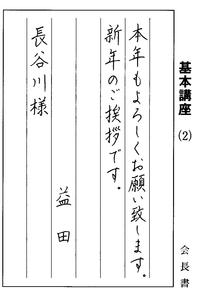 基本講座
(2)
会長書
本年もよろしくお願い致します。
新年のご挨拶です。
益田
長谷川様